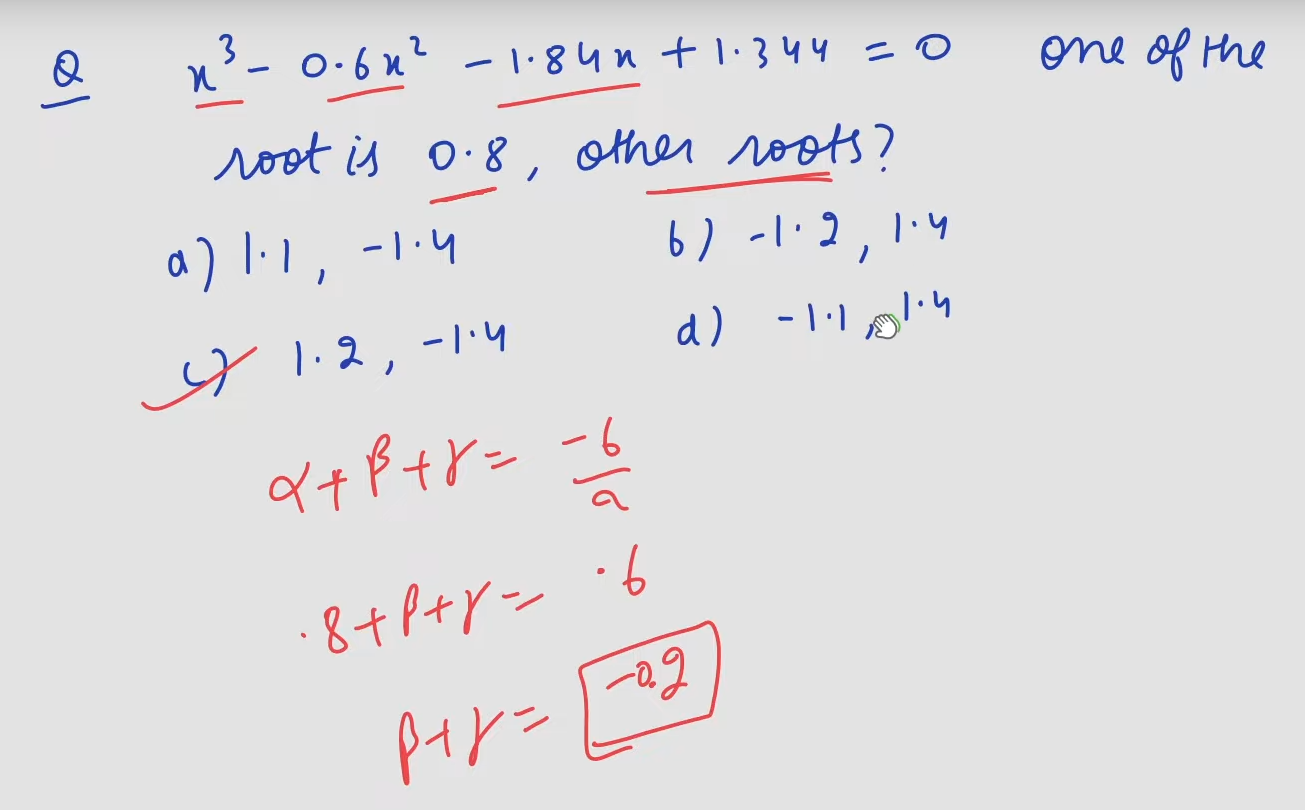 Q x³ - 0.6x² - 1.84x + 1.344 = 0 one of the
root is 0.8, other roots?
a) 1.1, -1.4 b) -1.2, 1.4
c) 1.2, -1.4 d) -1.1, 1.4
α+β+γ = -b/a
.8+β+γ = .6
β+γ = -0.2